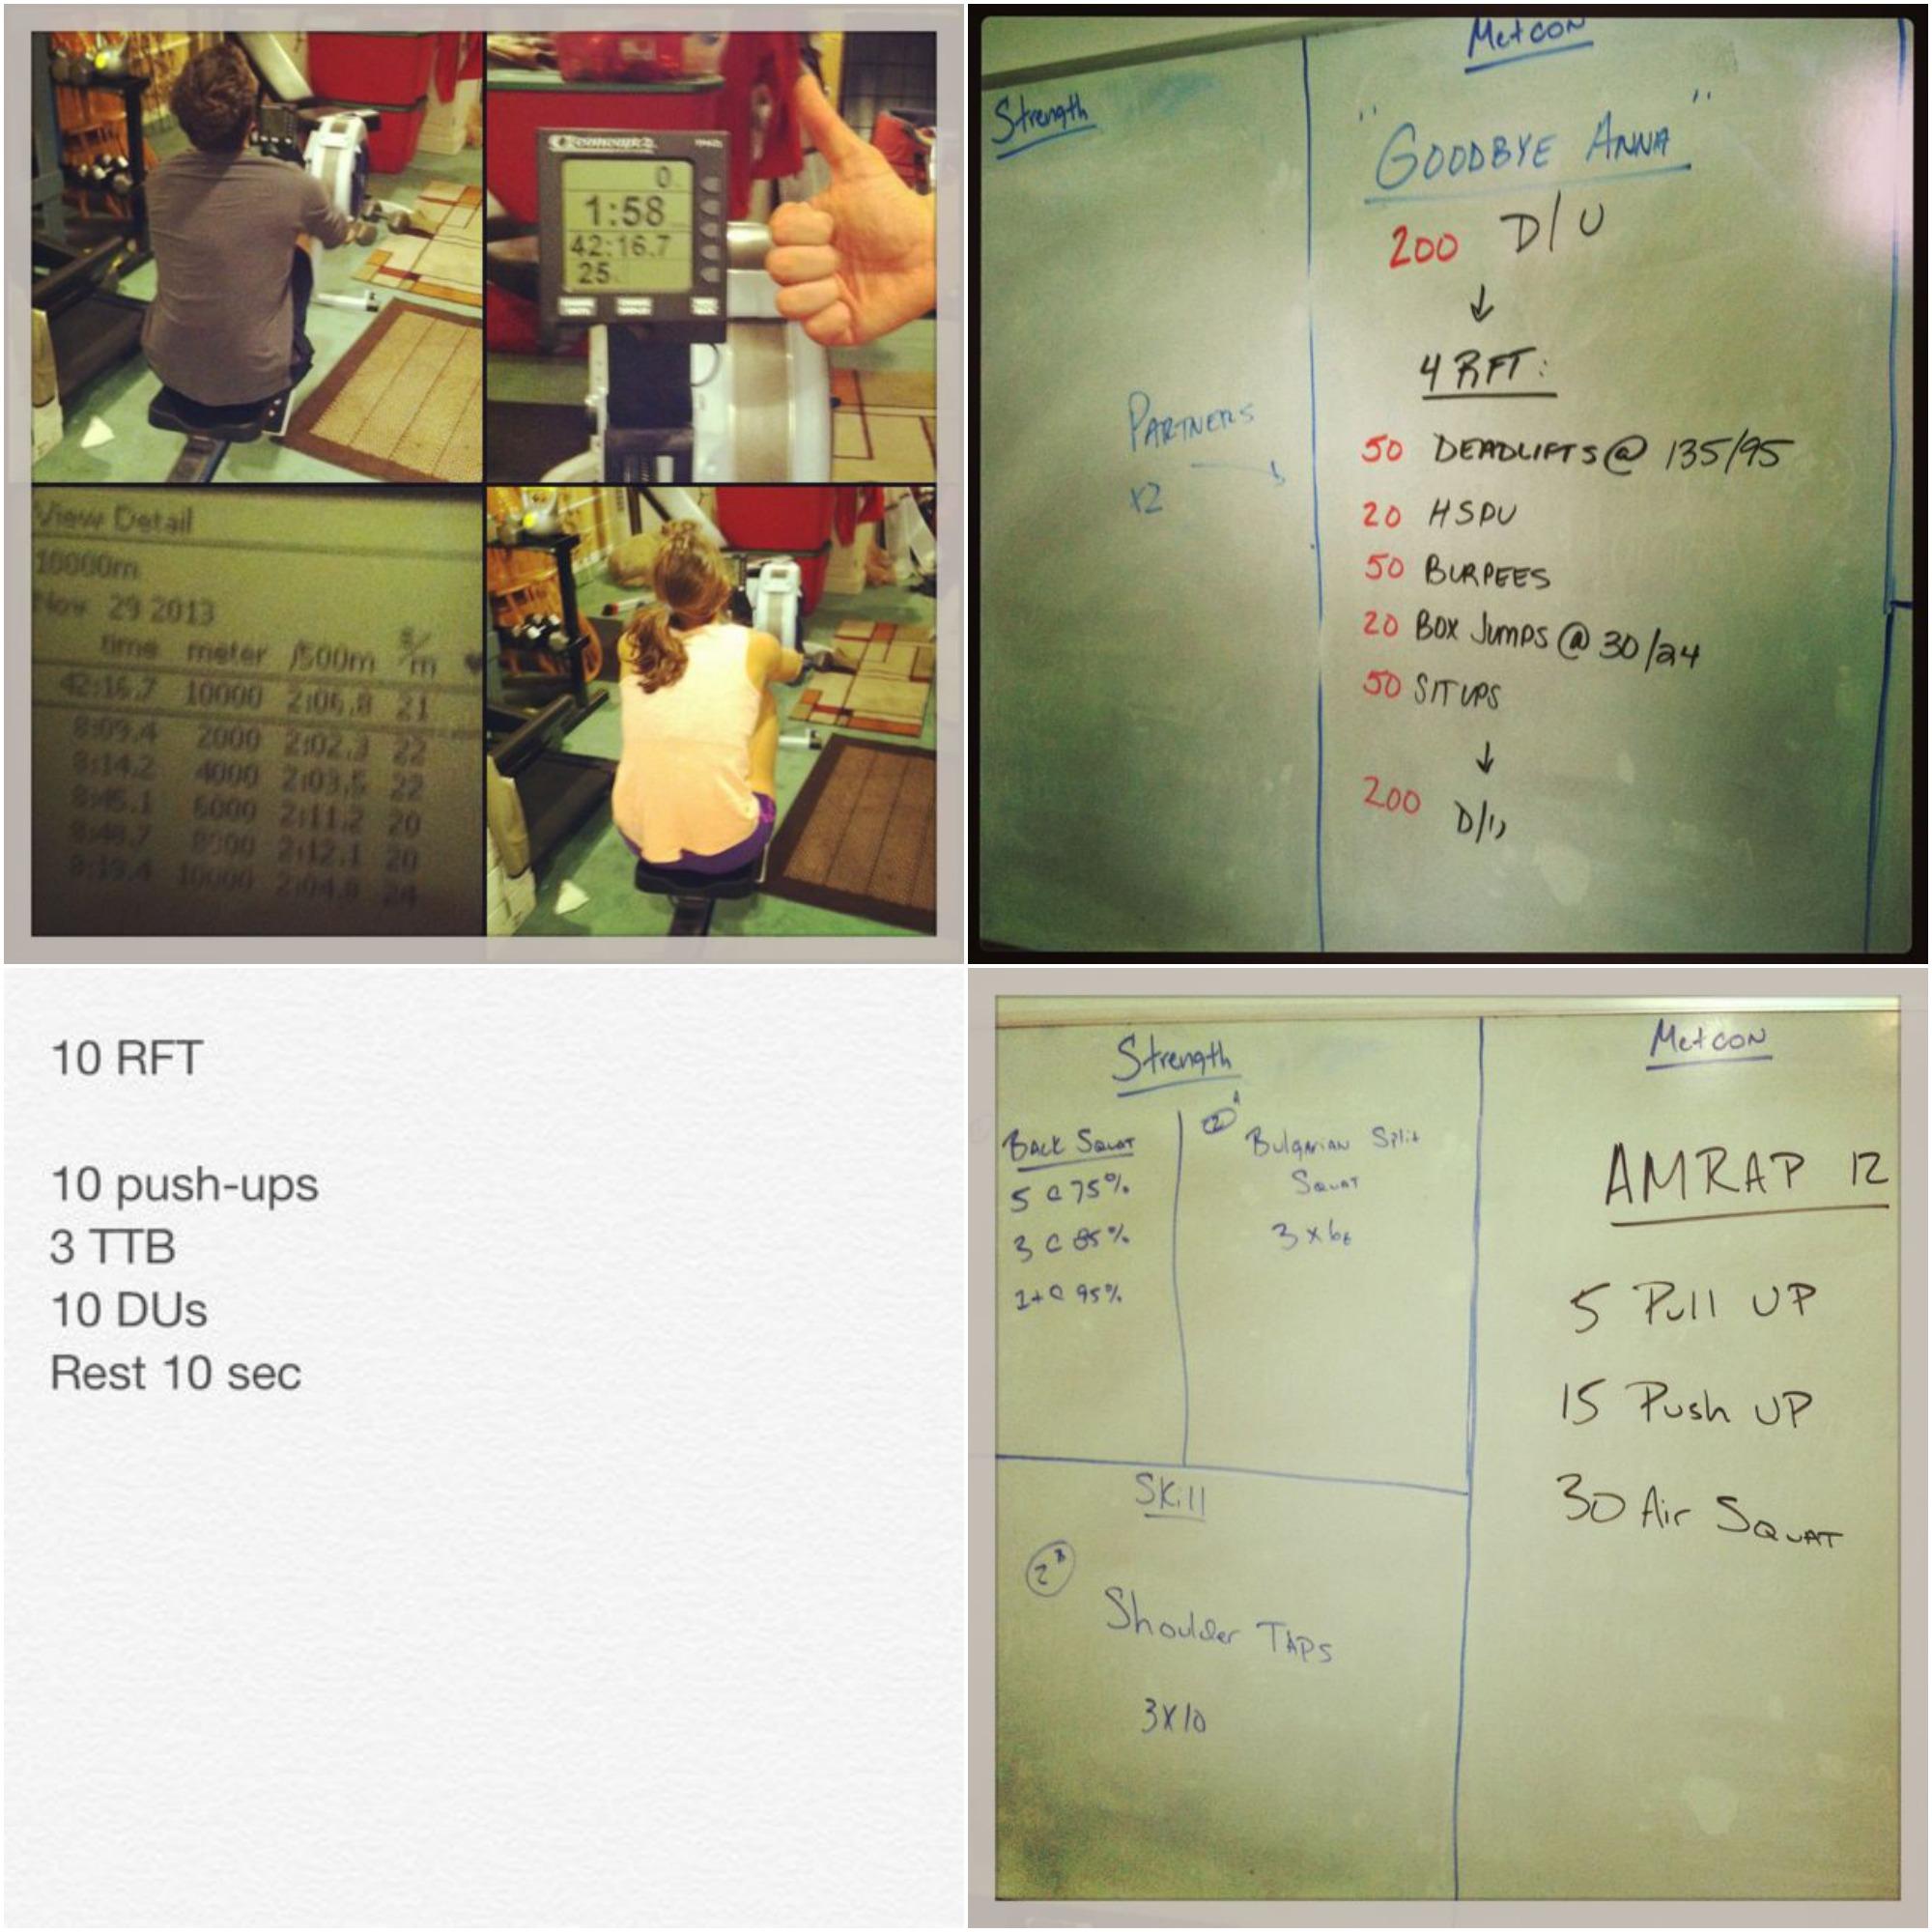 Concept2
PM2
0
1:58
42:16.7
25
View Detail
10000m
Nov 29 2013
time meter /500m s/m
42:16.7 10000 2:06.8 21
8:09.4 2000 2:02.3 22
8:14.2 4000 2:03.5 22
8:45.1 6000 2:11.2 20
8:48.7 8000 2:12.1 20
8:19.4 10000 2:04.8 24
Metcon
Strength
"GOODBYE ANNA"
200 D/U
↓
4 RFT:
50 DEADLIFTS @ 135/95
PARTNERS
x2
20 HSPU
50 BURPEES
20 BOX JUMPS @ 30/24
50 SITUPS
↓
200 D/U
10 RFT
10 push-ups
3 TTB
10 DUs
Rest 10 sec
Strength
BACK SQUAT
5 @ 75%
3 @ 85%
1+ @ 95%
2A
Bulgarian Split
Squat
3 x 6e
Skill
2B
Shoulder TAPS
3X10
Metcon
AMRAP 12
5 Pull UP
15 Push UP
30 Air SQUAT